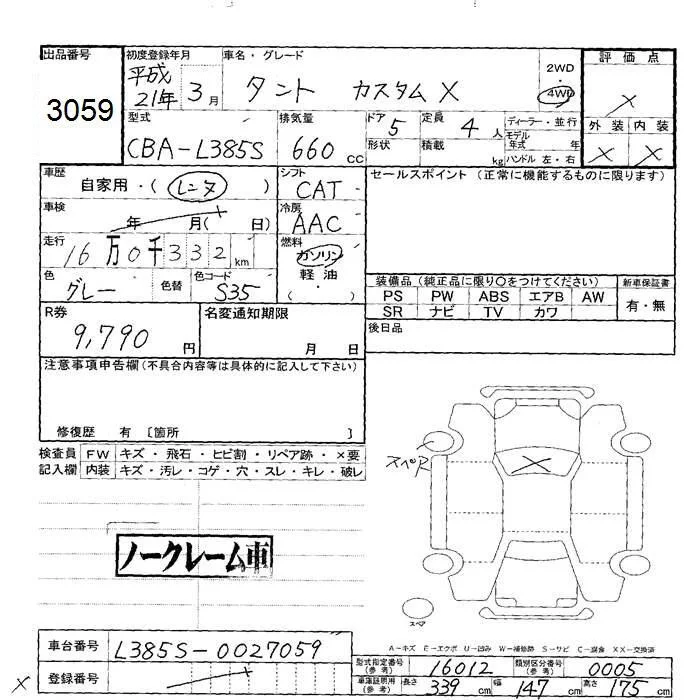 出品番号
3059
初度登録年月
平成21年 3月
車名・グレード
タント カスタムX
2WD・4WD
評価点
×
外装 内装
× ×
型式
CBA-L385S
排気量
660cc
ドア
5
形状
定員
4人
積載
kg
ディーラー・並行
モデル年式 年
ハンドル 左・右
車歴
自家用・(レンタ)
シフト
CAT
冷房
AAC
セールスポイント (正常に機能するものに限ります)
車検
年 月( 日)
走行
16万0千332km
燃料
ガソリン
軽油
( ・ )
色
グレー
色替
色コード
S35
装備品 (純正品に限り○をつけてください)
PS PW ABS エアB AW
SR ナビ TV カワ
新車保証書
有・無
R券
9,790円
名変通知期限
月 日
後日品
注意事項申告欄(不具合内容等は具体的に記入して下さい)
修復歴 有 〔箇所 〕
検査員記入欄
FW キズ・飛石・ヒビ割・リペア跡・×要
内装 キズ・汚レ・コゲ・穴・スレ・キレ・破レ
×
スペア
ノークレーム車
A-キズ E-エクボ U-凹み W-補修跡 S-サビ C-腐食 XX-交換済
車台番号
L385S-0027059
登録番号
×
型式指定番号(参考)
16012
類別区分番号(参考)
0005
車庫証明用(参考)
長さ 339cm 幅 147cm 高さ 175cm